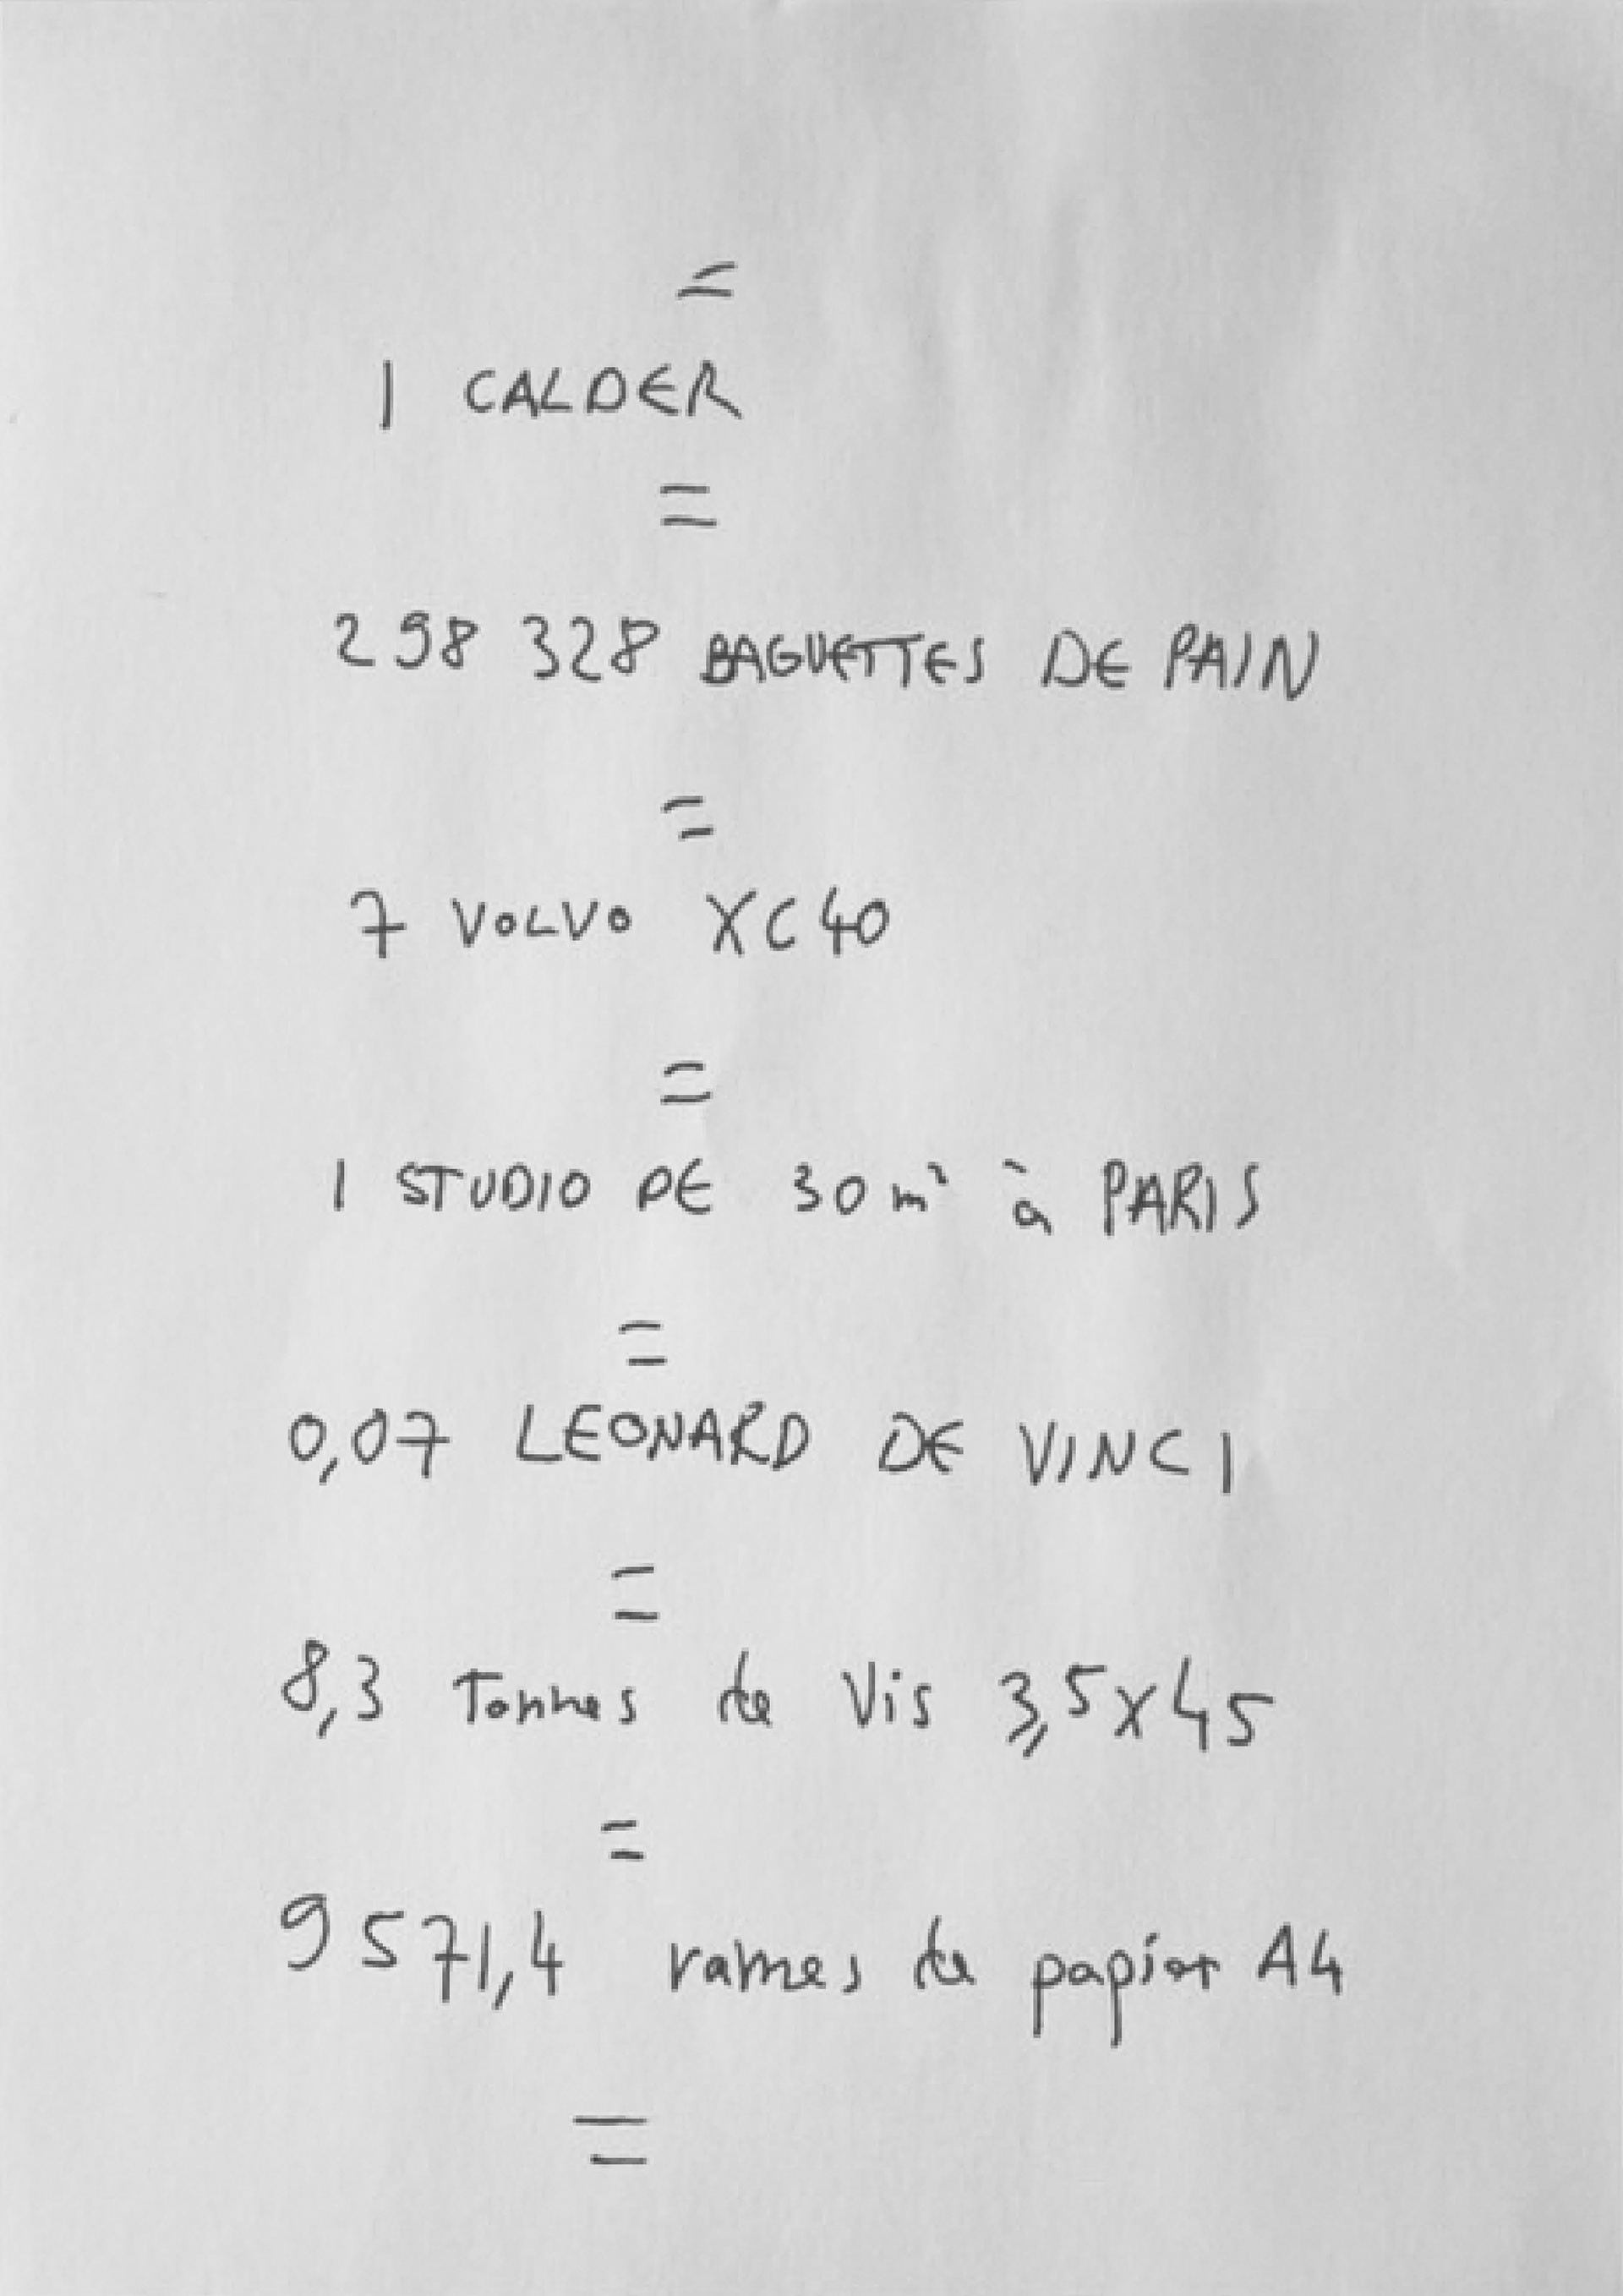 =
1 CALDER
=
298 328 BAGUETTES DE PAIN
=
7 VOLVO XC40
=
1 STUDIO DE 30m² à PARIS
=
0,07 LEONARD DE VINCI
=
8,3 Tonnes de Vis 3,5x45
=
9571,4 rames de papier A4
=